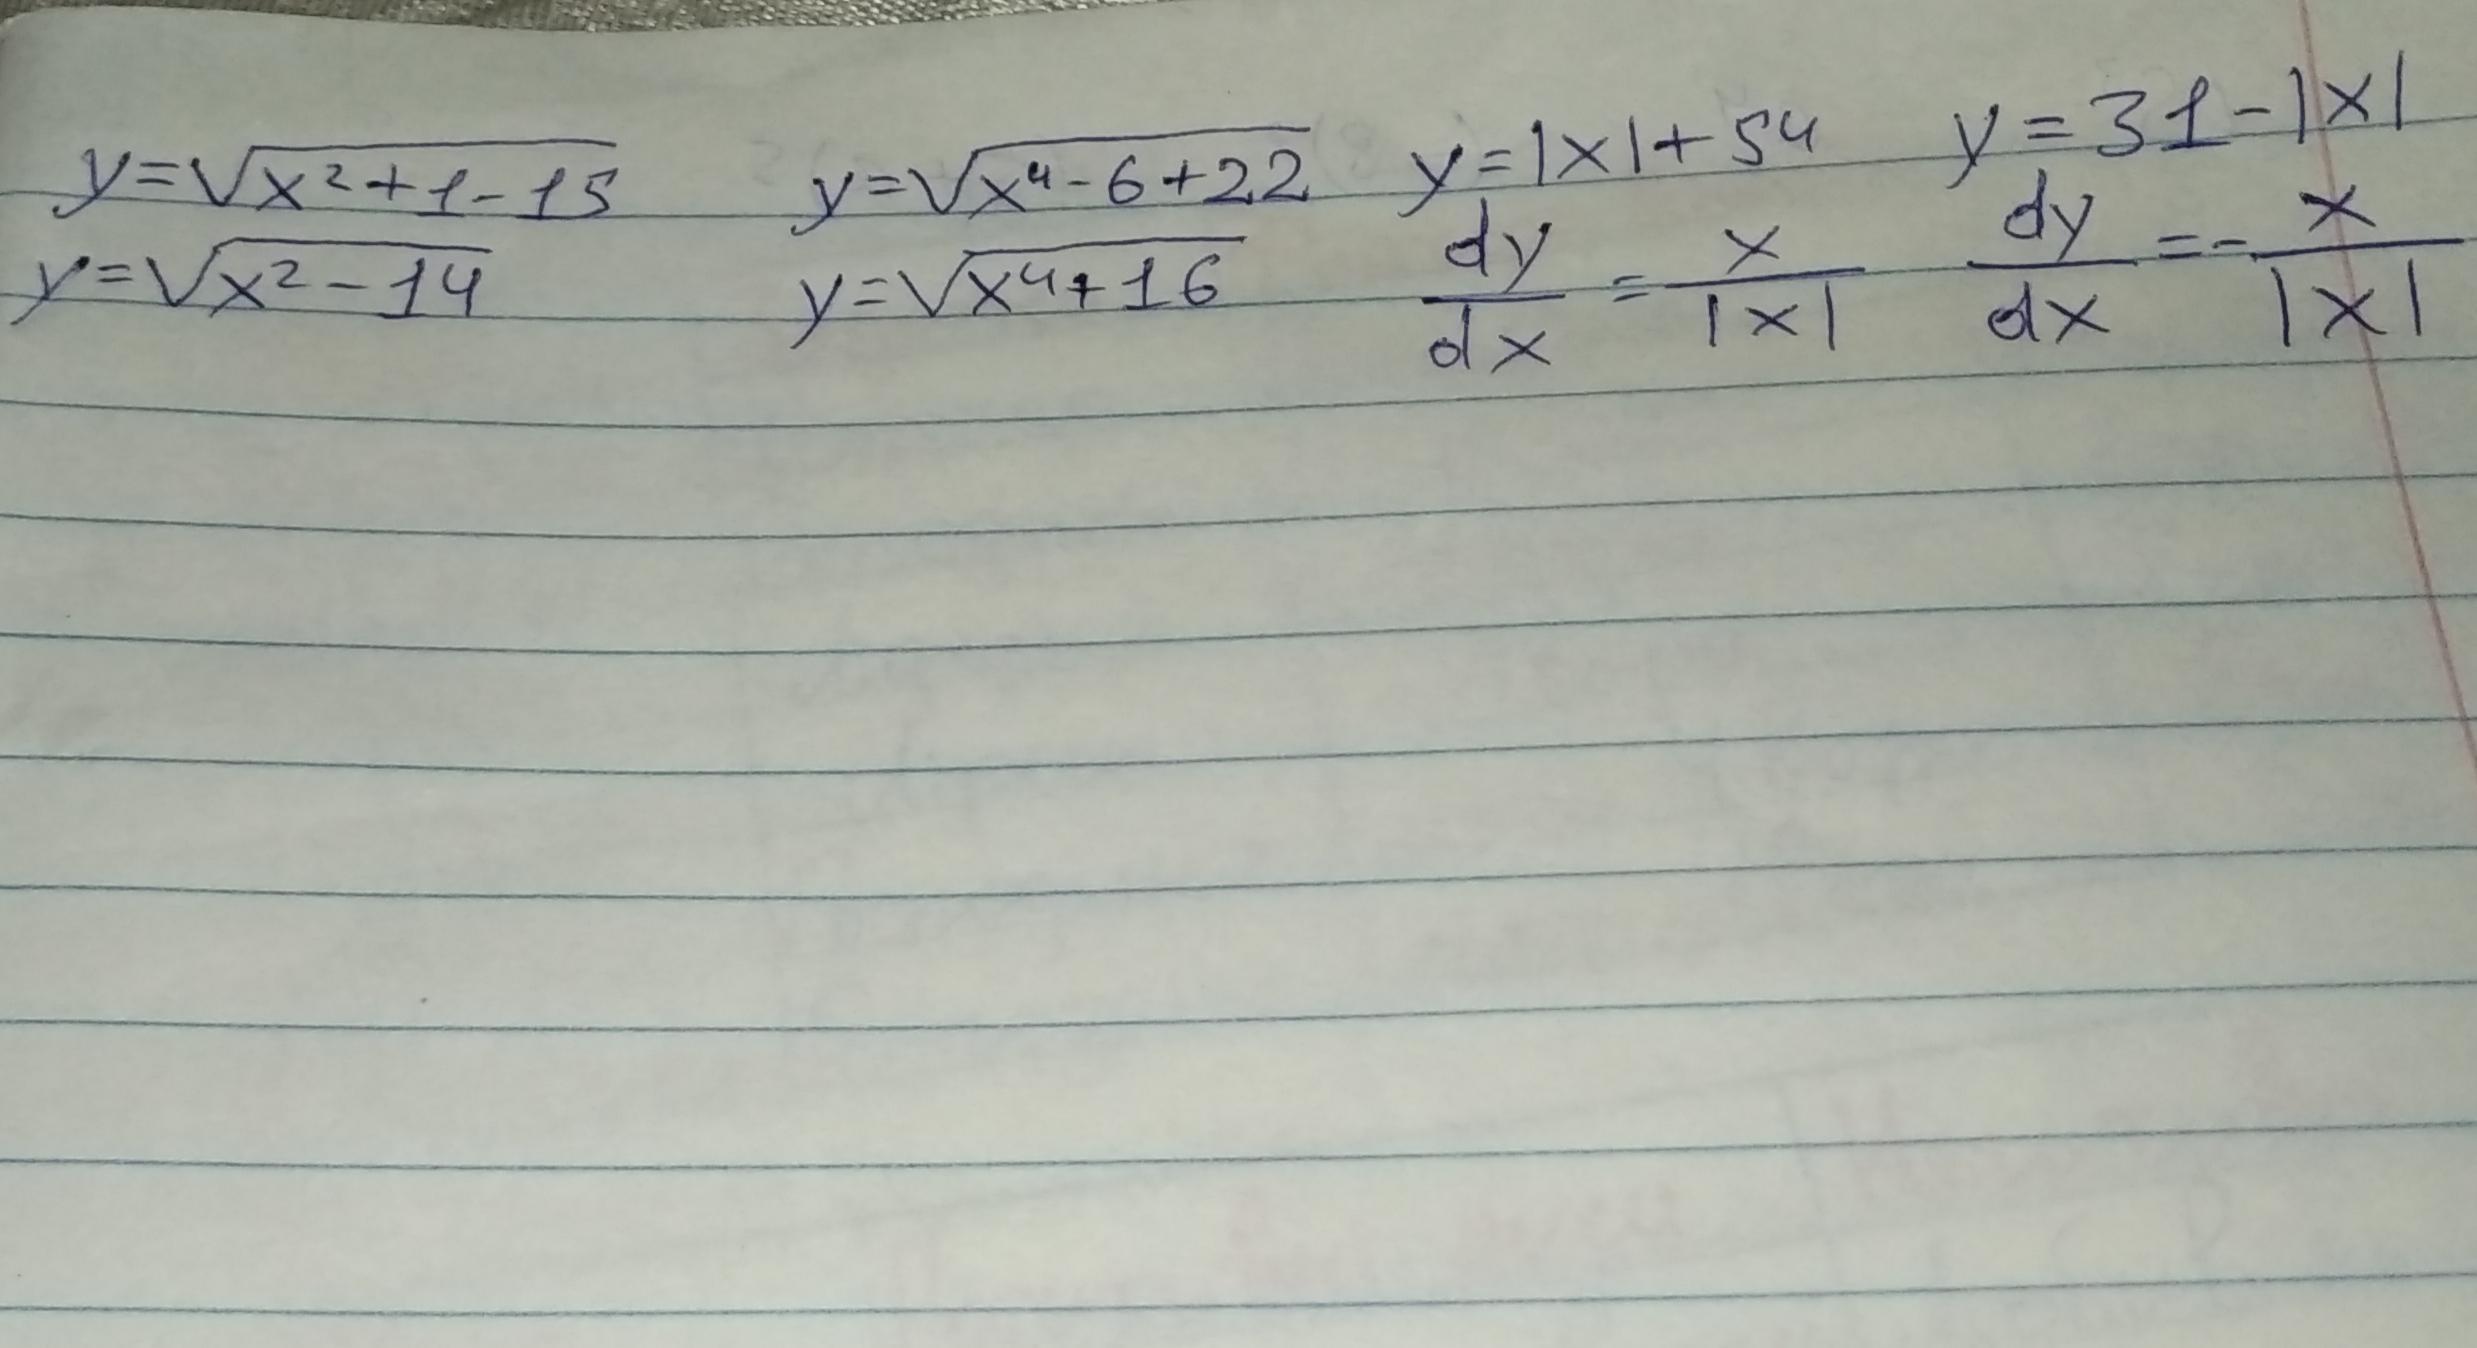 y=√(x²+1-15)
y=√(x²-14)
y=√(x⁴-6+22)
y=√(x⁴+16)
y=|x|+54
dy/dx = x/|x|
y=31-|x|
dy/dx =- x/|x|